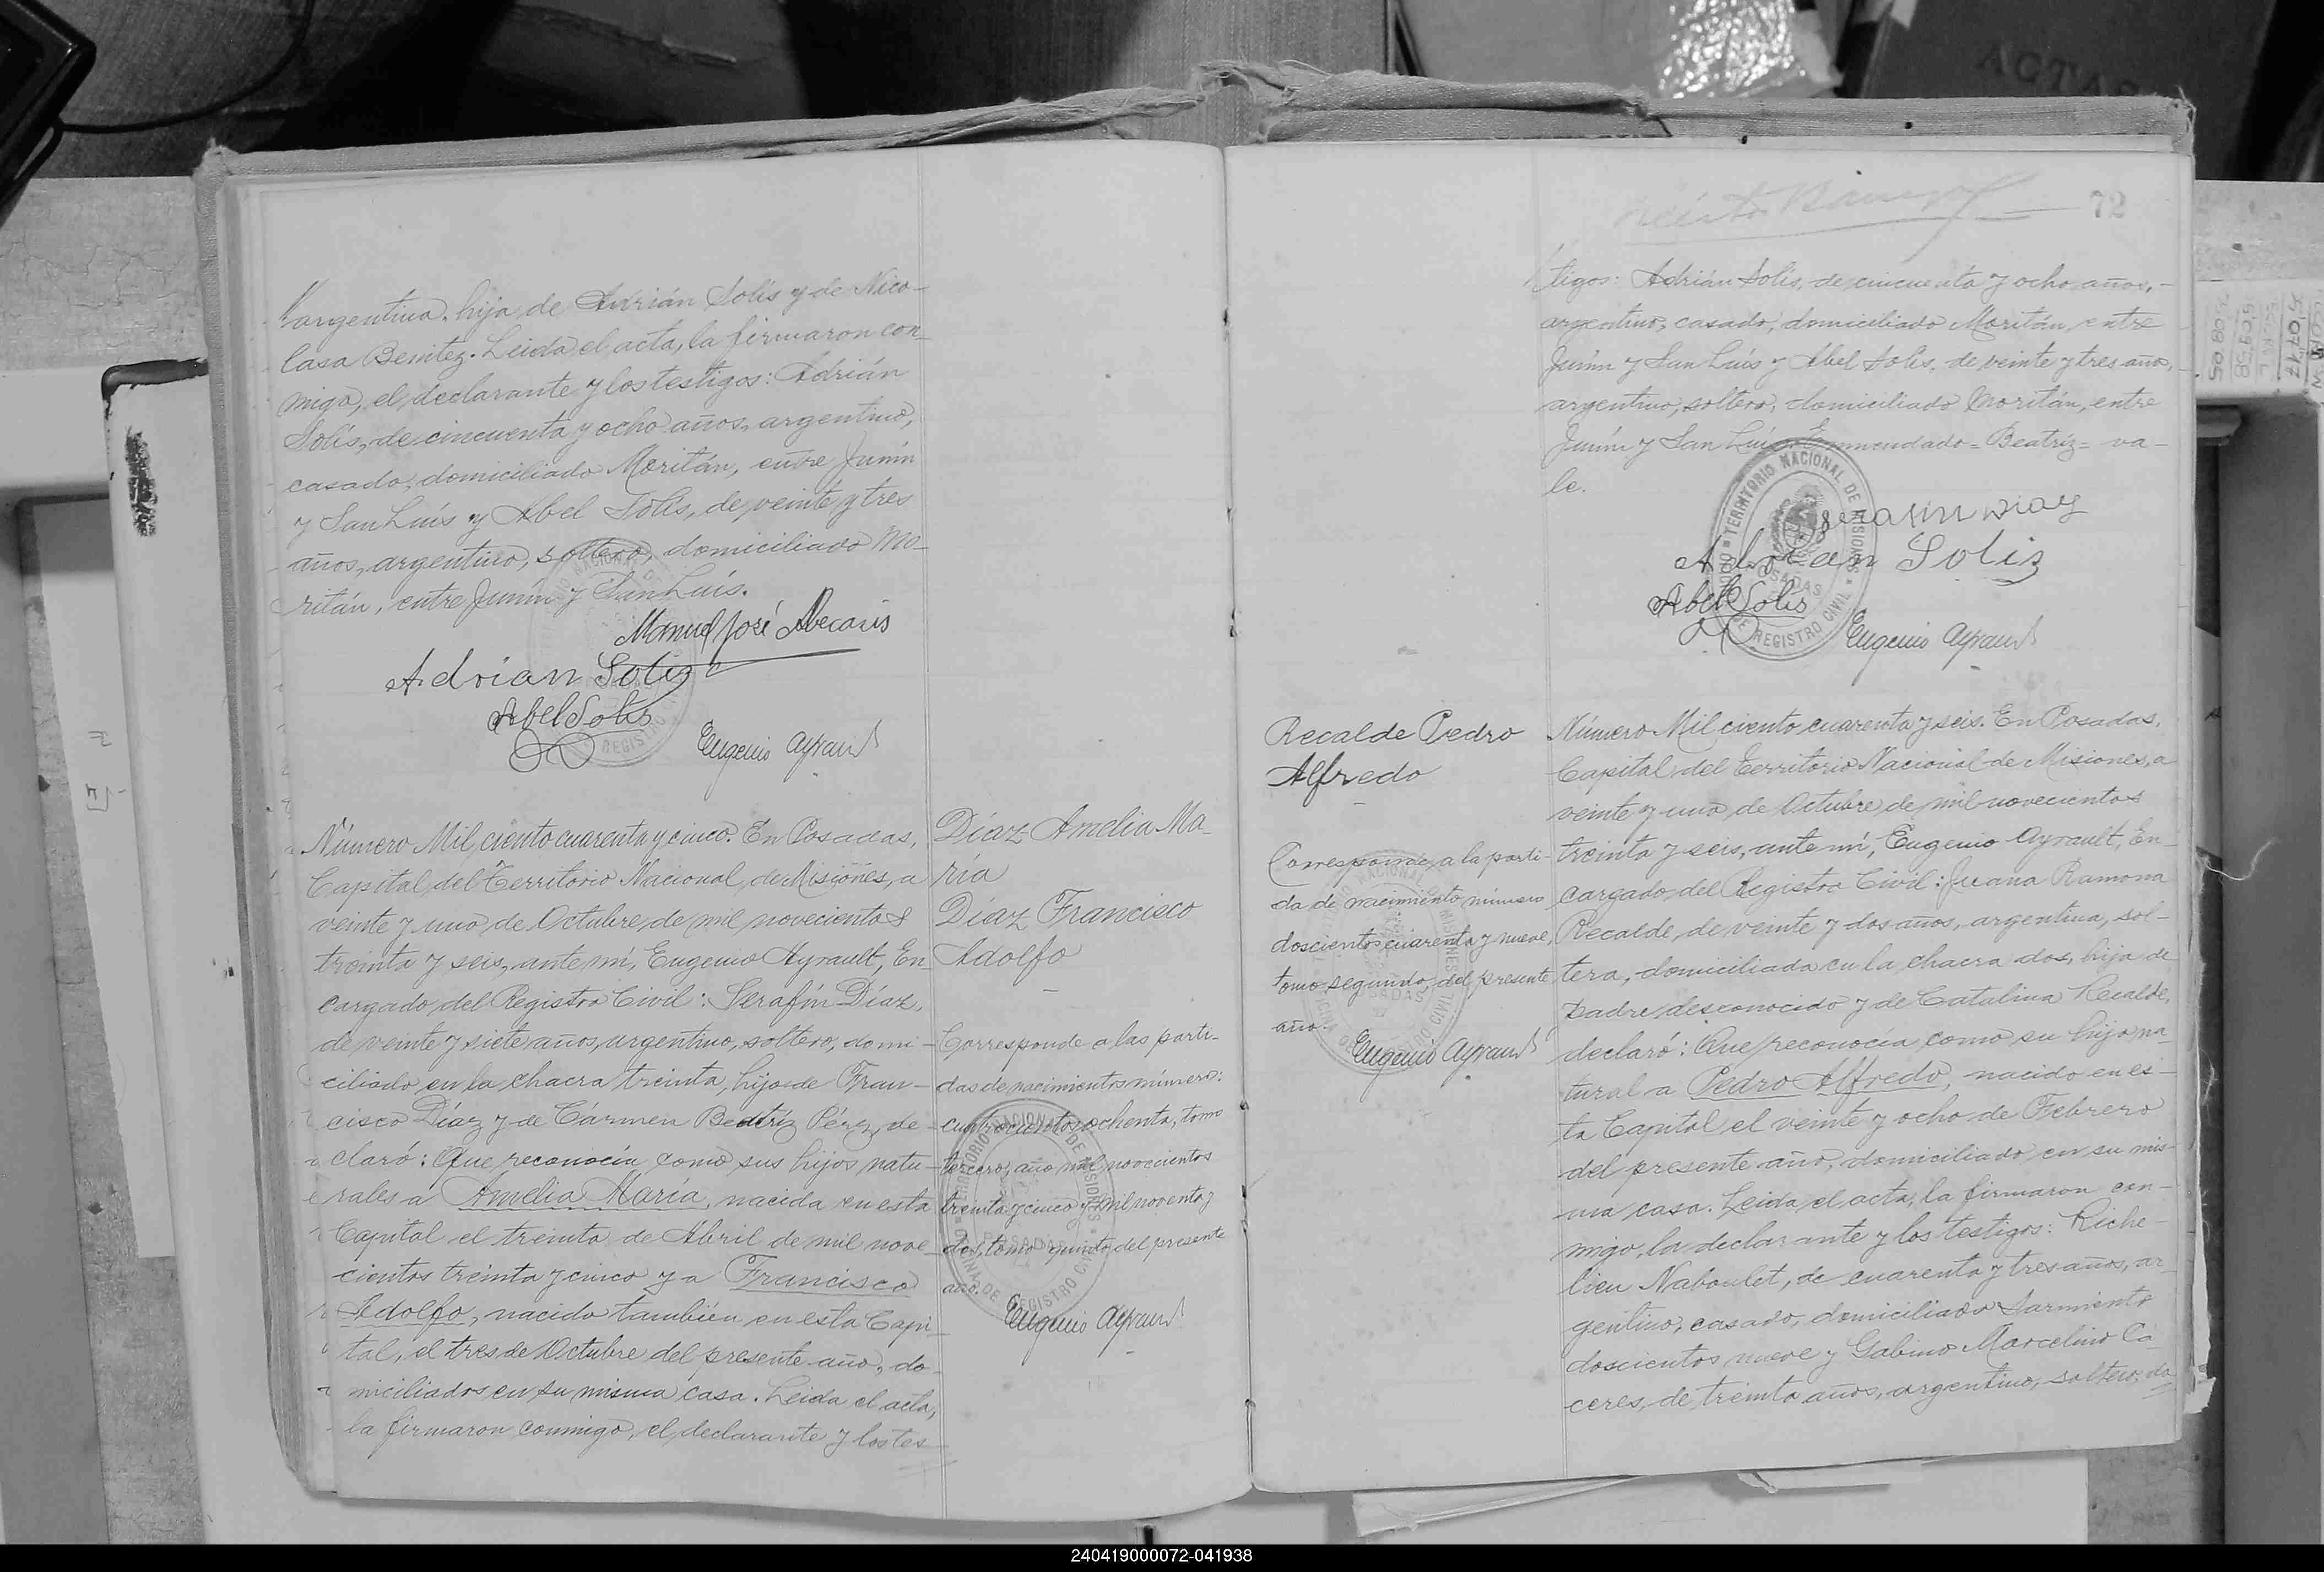 argentina, hija de Adrián Solís y de Nico-
lasa Benitez. Leida el acta, la firmaron con-
migo, el declarante y los testigos: Adrián
Solís, de cincuenta y ocho años, argentino,
casado, domiciliado Moritán, entre Junín
y San Luís y Abel Solís, de veinte y tres
años, argentino, soltero, domiciliado Mo-
ritán, entre Junín y San Luís.
Manuel José
Adrian Solis
Abel Solis
Eugenio Ayrault
Número Mil ciento cuarenta y cinco. En Posadas,
Capital del Territorio Nacional de Misiones, a
veinte y uno de Octubre de mil novecientos
treinta y seis, ante mí, Eugenio Ayrault, En-
cargado del Registro Civil: Serafín Díaz,
de veinte y siete años, argentino, soltero, domi-
ciliado en la chacra treinta, hijo de Fran-
cisco Díaz y de Cármen Beatríz Pérez, de-
claró: Que reconocía como sus hijos natu-
rales a Amelia María, nacida en esta
Capital el treinta de Abril de mil nove-
cientos treinta y cinco y a Francisco
Adolfo, nacido también en esta Capi-
tal, el tres de Octubre del presente año, do-
miciliados en su misma casa. Leida el acta,
la firmaron conmigo, el declarante y los tes-
Díaz Amelia Ma-
ría
Díaz Francisco
Adolfo
Corresponde a las parti-
das de nacimientos número:
cuatrocientos ochenta, tomo
tercero, año mil novecientos
treinta y cinco y mil noventa y
dos, tomo quinto, del presente
año.
Eugenio Ayrault
72
tigos: Adrián Solís, de cincuenta y ocho años,
argentino, casado, domiciliado Moritán, entre
Junín y San Luís y Abel Solís, de veinte y tres años,
argentino, soltero, domiciliado Moritán, entre
Junín y San Luís. Enmendado = Beatríz = va-
le.
TERRITORIO NACIONAL DE MISIONES
POSADAS
REGISTRO CIVIL
Serafin Diaz
Adrian Solis
Abel Solis
Eugenio Ayrault
Recalde Pedro
Alfredo
Corresponde a la parti-
da de nacimiento número
doscientos cuarenta y nueve,
tomo segundo, del presente
año.
Eugenio Ayrault
Número Mil ciento cuarenta y seis. En Posadas,
Capital del Territorio Nacional de Misiones, a
veinte y uno de Octubre de mil novecientos
treinta y seis, ante mí, Eugenio Ayrault, En-
cargado del Registro Civil: Juana Ramona
Recalde, de veinte y dos años, argentina, sol-
tera, domiciliada en la chacra dos, hija de
padre desconocido y de Catalina Recalde,
declaró: Que reconocía como su hijo na-
tural a Pedro Alfredo, nacido en es-
ta Capital el veinte y ocho de Febrero
del presente año, domiciliado en su mis-
ma casa. Leida el acta, la firmaron con-
migo, la declarante y los testigos: Riche-
lieu Naboulet, de cuarenta y tres años, ar-
gentino, casado, domiciliado Sarmiento
doscientos nueve y Gabino Marcelino Cá-
ceres, de treinta años, argentino, soltero, do-
240419000072-041938